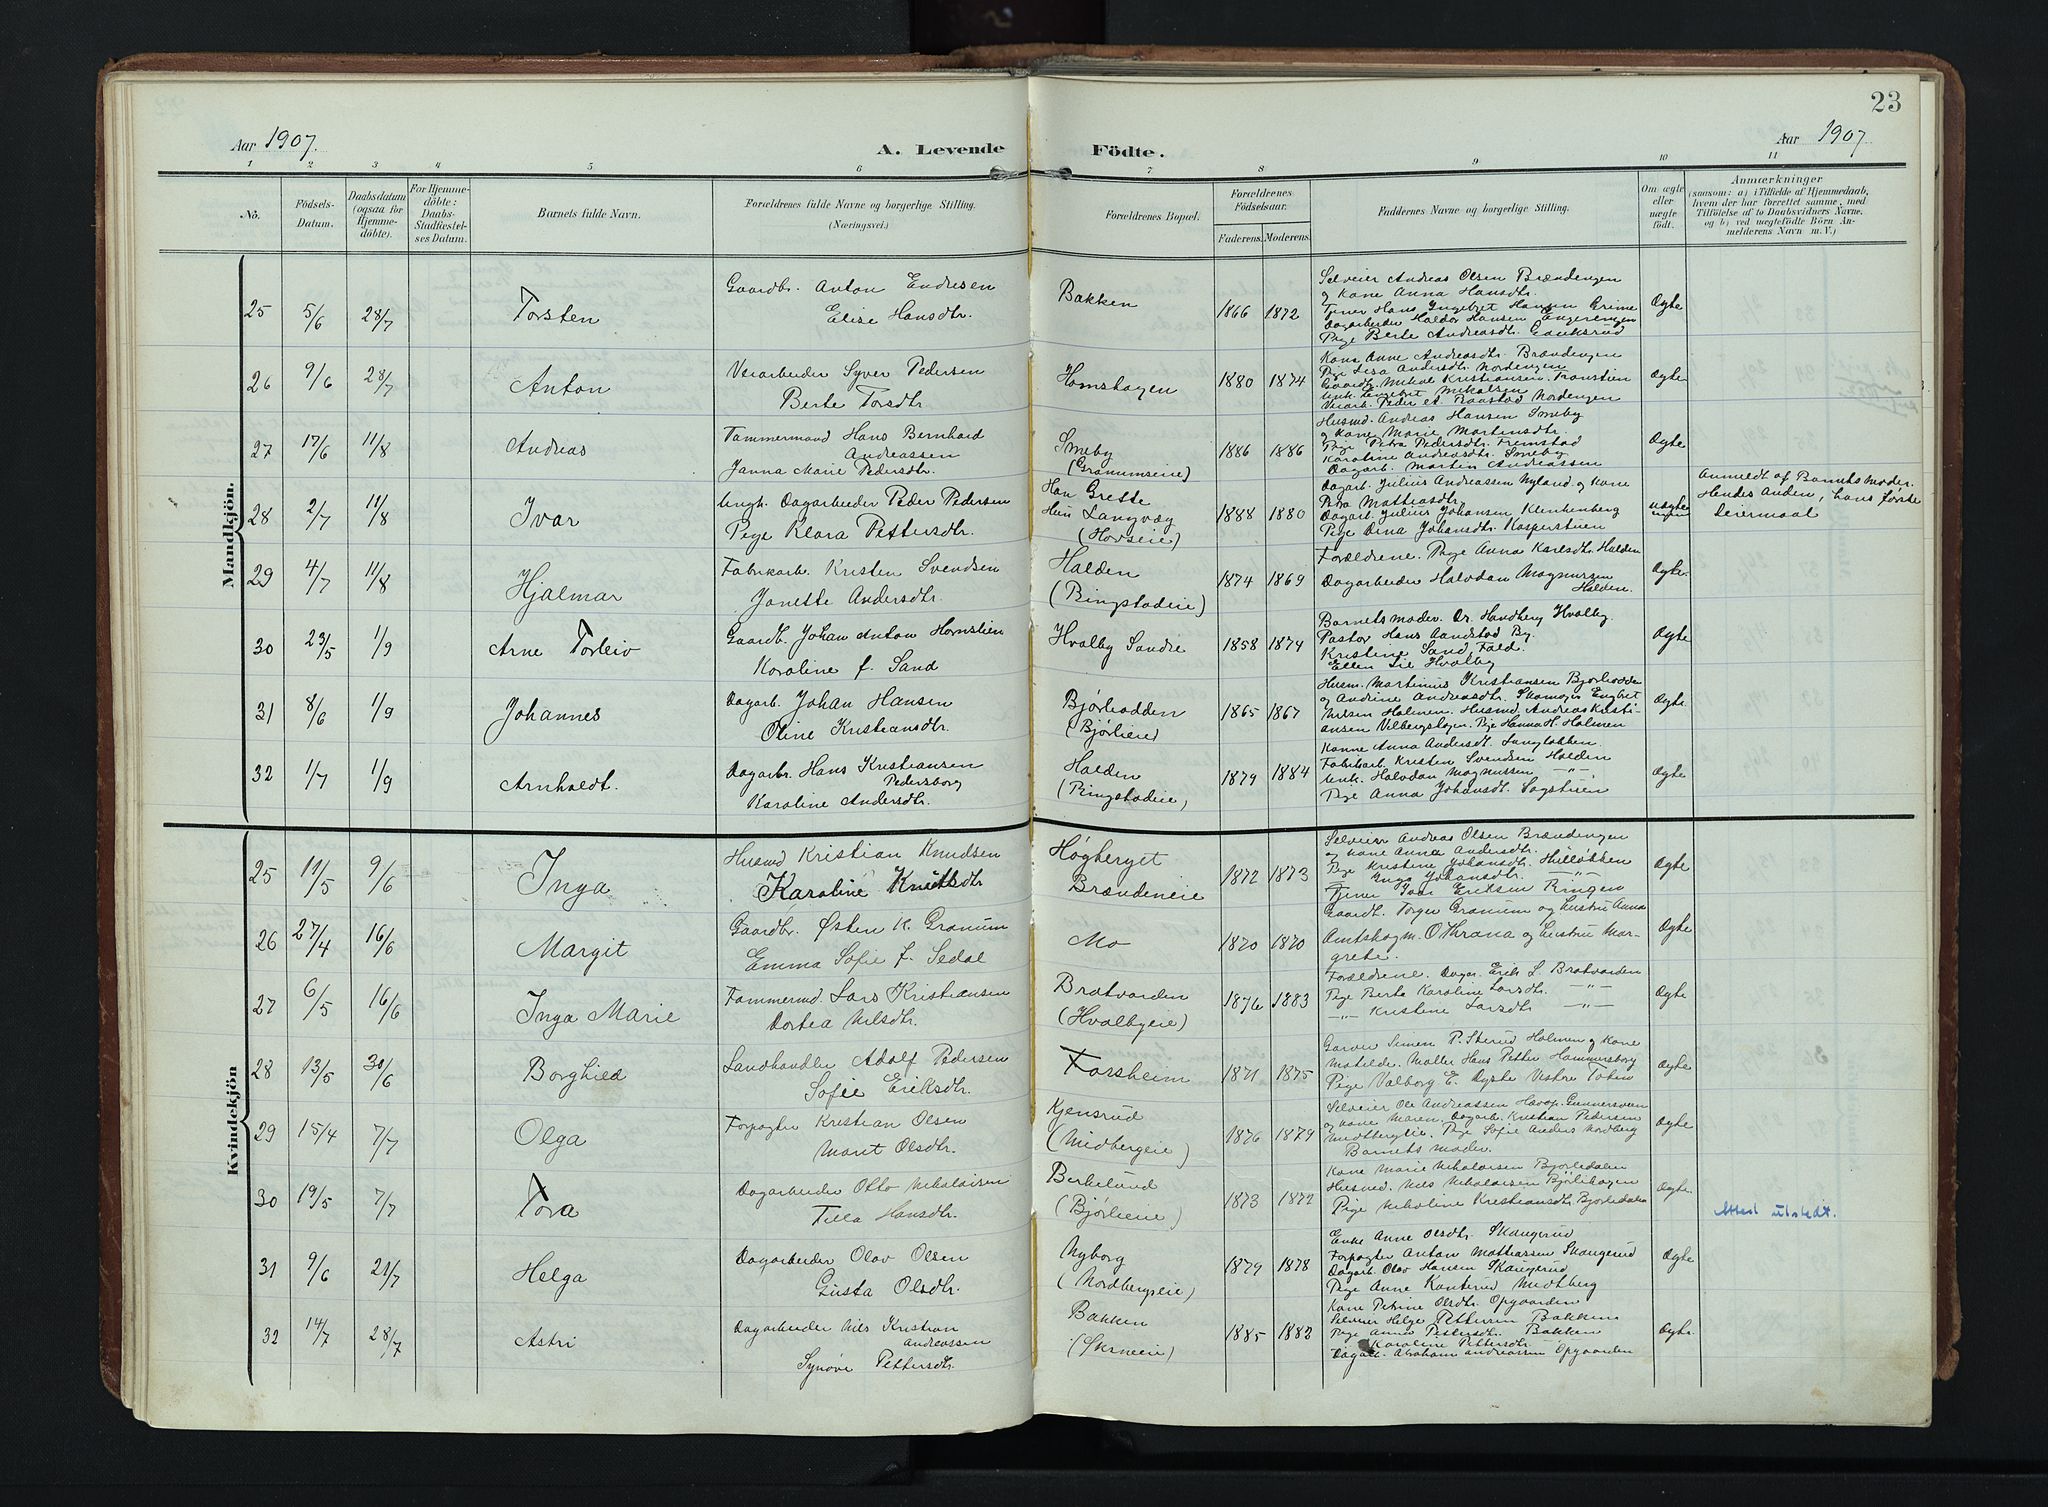 23
Aar 1907.
A. Levende Födte.
Aar 1907.
1 2 3 4 5 6 7 8 9 10 11
No.
Födsels-Datum.
Daabsdatum (ogsaa for Hjemme-döbte).
For Hjemme-döbte: Daabs-Stadfæstel-ses Datum.
Barnets fulde Navn.
Forældrenes fulde Navne og borgerlige Stilling.
(Næringsvei.)
Forældrenes Bopæl.
Forældrenes Födselsaar.
Faderens. Moderens.
Faddernes Navne og borgerlige Stilling.
Om ægte eller uægte födt.
Anmærkninger
(saasom: a) i Tilfælde af Hjemmedaab,
hvem der har forrettet samme, med
Tilföielse af to Daabsvidners Navne,
og b) ved uegtefödte Börn An-
melderens Navn m. V.)
Mandkjön.
25 5/6 28/7 Torsten
Gaardbr. Anton Endresen
Elise Hansdtr.
Bakken
1866 1872
Selveier Andreas Olsen Brændengen
og Kone Anna Hansdtr.
Tjener Hans Ingebret Hansen Grime
Dagarbeider Haldor Hansen Engerengen
Pige Berte Andreasdtr. Gauksrud
Ægte
26 9/6 28/7 Anton
Veiarbeider Syver Pedersen
Berte Torsdtr.
Homshagen
1880 1874
Kone Anne Andreasdtr. Brændengen
Pige Lisa Andersdtr. Nordengen
Gaardb. Mikal Kristiansen
Ungk. Ingebret Mikalsen
Veiarb. Peder Nordengen
Ægte
27 17/6 11/8 Andreas
Tømmermand Hans Bernhard
Andreassen
Janna Marie Pedersdtr.
Smeby
(Granumseie)
1886 1886
Husmd. Andreas Hansen Smeby
og Kone Marie Martinsdtr.
Pige Petra Pedersdtr. Fremstad
Karoline Andreasdtr. Smeby
Dagarb. Martin Andreassen
Ægte
28 2/7 11/8 Ivar
Ungk. Dagarbeider Peder Pedersen
Pige Klara Pettersdtr.
Han Grette
Hun Langvæg
(Hovseie)
1888 1880
Dagarb. Julius Andreassen Nyland og Kone
Petra Mattiasdtr.
Dagarb. Julius Johansen Klinkenberg
Pige Dina Johansdtr. Kasperstuen
Uægte
Anmeldt af Barnets Moder.
Hendes Anden, hans første
Leiermaal
29 4/7 11/8 Hjalmar
Fabrikarb. Kristen Svendsen
Janette Andersdtr.
Halden
(Ringstadeie)
1874 1869
Forældrene. Pige Anna Karlsdtr. Halden
Dagarbeider Halvdan Magnussen
Halden.
Ægte.
30 23/5 1/9 Arne Torleiv
Gaardb. Johan Anton Hornslien
Karoline f. Sand
Hvalby Søndre
1858 1874
Barnets moder. Dr. Handberg Hvalby.
Pastor Hans Aandstad By.
Kristine Sand, Fald.
Ellen Lie Hvalby
Ægte
31 8/6 1/9 Johannes
Dagarb. Johan Hansen
Oline Kristiansdtr.
Bjørliodden
(Bjørlieie)
1865 1867
Husm. Martinius Kristiansen Bjørliodden
og Andrine Andreasdtr. Skomager Engbret
Nilsen Holmen. Husmd. Andreas Kristi-
ansen Vilbergshagen. Pige Hanna H. Holmen
Ægte.
32 1/7 1/9 Arnholdt.
Dagarbr. Hans Kristiansen
Pedersborg
Karoline Andersdtr.
Halden
(Ringstadeie)
1879 1884
Kone Anna Andersdtr. Langløkken.
Fabrikarb. Kristen Svendsen Halden
Ungk. Halvdan Magnussen —"—
Pige Anna Johansdtr. Sagstuen
Ægte
Kvindekjön
25 11/5 9/6 Inga
Husmd Kristian Knudsen
Karoline Knutsdtr
Høgberget
Brændeneie
1872 1873
Selveier Andreas Olsen Brændengen
og Kone Anna Andersdtr.
Pige Kristine Johansdtr. Hilløkken
Inga Johansdtr. —"—
Tjener Ivar Eriksen Ringen
Ægte
26 27/4 16/6 Margit
Gaardbr. Østen K. Granum
Emma Sofie f. Sedal
Mo
1870 1870
Gaardb. Torger Granum og hustru Anna
Amtskogm. O. Thrana og hustru Mar-
grete.
Ægte
27 6/5 16/6 Inga Marie
Tømmermd. Lars Kristiansen
Dortea Nilsdtr.
Bratvorden
(Hvalbyeie)
1876 1883
Forældrene. Dagar. Erik L. Bratvorden
Pige Berta Karoline Larsdtr. —"—
—"— Kristine Larsdtr —"—
Ægte
28 13/5 30/6 Borghild
Landhandler Adolf Pedersen
Sofie Eriksdtr.
Forsheim
1871 1875
Garver Simen P. Sterud Holmen og Kone
Matilde. Maller Hans Petter Hammersborg
Pige Valborg E. Dyste Vestre Toten
Ægte
29 15/4 7/7 Olga
Forpagter Kristian Olsen
Marit Olsdtr.
Kjensrud
(Midbergeie)
1876 1879
Selveier Ole Andreassen Havop. Gunnersveen
og Kone Maren. Dagarb. Kristian Pedersen
Midtbergeie. Pige Sofie Anders Nordberg
Barnets moder.
Ægte
30 19/5 7/7 Tora
Dagarbeider Otto Nikolaisen
Tilla Hansdtr.
Birkelund
(Bjørlieie)
1873 1872
Kone Marie Nikolaisen Bjørledalen
Husmd. Nils Nikolaisen Bjørlihagen
Pige Nikoline Kristiansdtr. Bjørledalen
Ægte.
Attest utstedt.
31 9/6 21/7 Helga
Dagarbeider Olav Olsen
Gusta Olsdtr.
Nyborg
(Nordbergseie)
1879 1878
Enke Anne Olsdtr. Skangerud
Forpagter Anton Mattiassen Skangerud
Dagarb. Olav Hansen Skangerud
Pige Anne Kanterud Midtberg
Ægte
32 14/7 28/7 Astri
Dagarbeider Nils Kristian
Andreassen
Synøve Pettersdtr.
Bakken
(Skrneeie)
1885 1882
Kone Petrine Olsdtr. Opgaarden
Selveier Helge Pettersen Bakken
Pige Anna Pettersdtr. Bakken
Karoline Pettersdtr.
Dagarb. Abraham Andreassen Opgaarden
Ægte